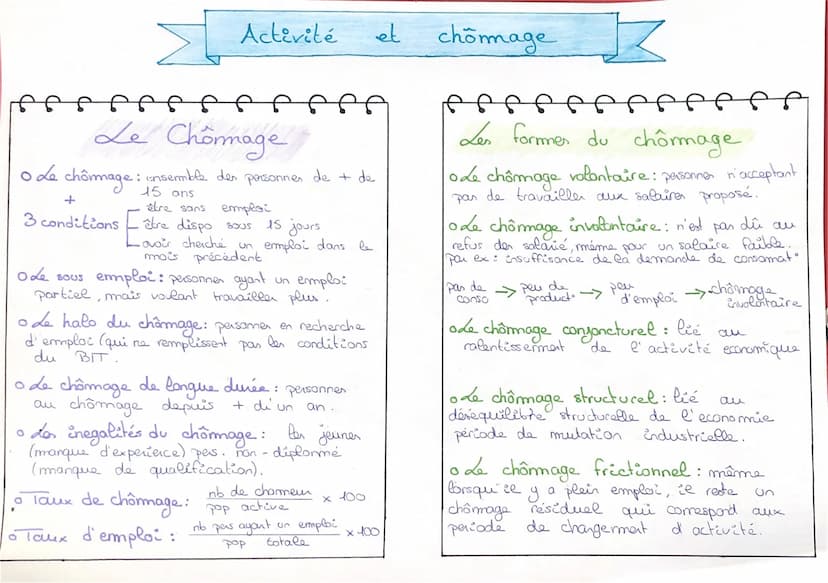 Activité et chômage
Le Chômage
o Le chômage : ensemble des personnes de + de
15 ans
+
3 conditions
être sans emploi
être dispo sous 15 jours
avoir cherché un emploi dans le
mois précédent
o Le sous emploi : personnes ayant un emploi
partiel, mais voulant travailler plus.
o Le halo du chômage : personnes en recherche
d'emploi (qui ne remplissent pas les conditions
du BIT.
o Le chômage de longue durée : personnes
au chômage depuis + d'un an.
o Les inegalités du chômage : les jeunes
(manque d'experience) pers. non-diplomé
(manque de qualification).
o Taux de chômage : nb de chomeur / pop active × 100
o Taux d'emploi : nb pers ayant un emploi / pop totale × 100
Les formes du chômage
o Le chômage volontaire : personnes n'acceptant
pas de travailler aux salaires proposé.
o Le chômage involontaire : n'est pas dû au
refus des salarié, même pour un salaire faible.
par ex : insuffisance de la demande de consomat°
pas de conso → peu de product° → peu d'emploi → chômage involontaire
o Le chômage conjoncturel : lié au
ralentissement de l'activité economique
o Le chômage structurel : lié au
déséquilibre structurelle de l'economie
période de mutation industrielle.
o Le chômage frictionnel : même
lorsqu'il y a plein emploi, il reste un
chômage résiduel qui correspond aux
periode de changement d'activité.